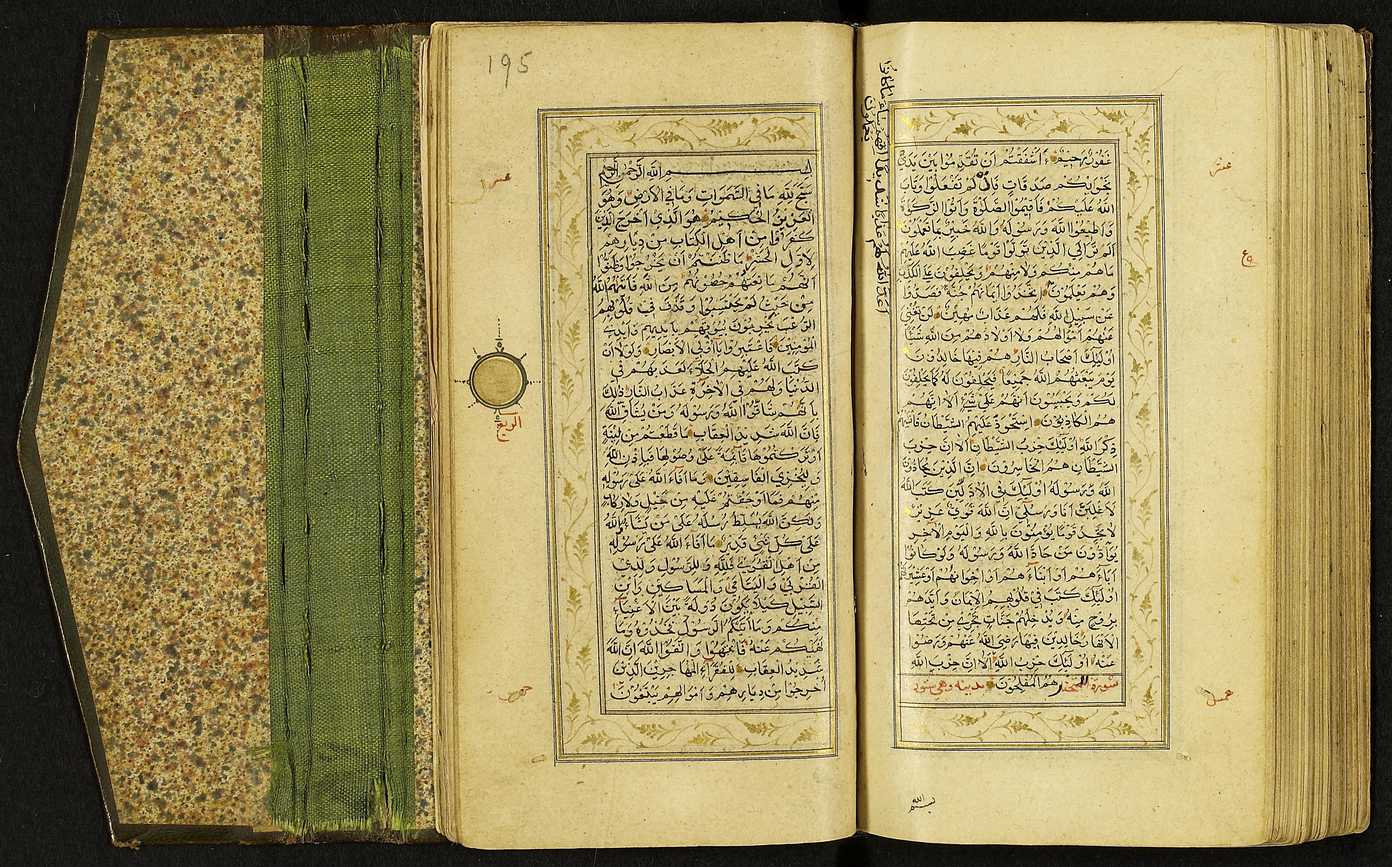 غفور رحيم ءأشفقتم أن تقدموا بين يدي
نجواكم صدقات فإذ لم تفعلوا وتاب
الله عليكم فأقيموا الصلوة وآتوا الزكوة
وأطيعوا الله ورسوله والله خبير بما تعملون
ألم تر إلى الذين تولوا قوما غضب الله عليهم
ما هم منكم ولا منهم ويحلفون على الكذب
وهم يعلمون اتخذوا أيمانهم جنة فصدوا
عن سبيل الله فلهم عذاب مهين لن تغني
عنهم أموالهم ولا أولادهم من الله شيئا
أولئك أصحاب النار هم فيها خالدون
يوم يبعثهم الله جميعا فيحلفون له كما يحلفون
لكم ويحسبون أنهم على شيء ألا إنهم
هم الكاذبون استحوذ عليهم الشيطان فأنساهم
ذكر الله أولئك حزب الشيطان ألا إن حزب
الشيطان هم الخاسرون إن الذين يحادون
الله ورسوله أولئك في الأذلين كتب الله
لأغلبن أنا ورسلي إن الله قوي عزيز
لا تجد قوما يؤمنون بالله واليوم الآخر
يوادون من حاد الله ورسوله ولو كانوا
آباءهم أو أبناءهم أو إخوانهم أو عشيرتهم
أولئك كتب في قلوبهم الإيمان وأيدهم
بروح منه ويدخلهم جنات تجري من تحتها
الأنهار خالدين فيها رضي الله عنهم ورضوا
عنه أولئك حزب الله ألا إن حزب الله
سورة الحشر هم المفلحون مدنية وهي
أعد الله لهم عذابا شديدا إنهم ساء ما كانوا
يعملون
عشر
ع
خمس
بسم الله
195
بسم الله الرحمن الرحيم
سبح لله ما في السموات وما في الأرض وهو
العزيز الحكيم هو الذي أخرج الذين
كفروا من أهل الكتاب من ديارهم
لأول الحشر ما ظننتم أن يخرجوا وظنوا
أنهم مانعتهم حصونهم من الله فأتاهم الله
من حيث لم يحتسبوا وقذف في قلوبهم
الرعب يخربون بيوتهم بأيديهم وأيدي
المؤمنين فاعتبروا يا أولي الأبصار ولولا أن
كتب الله عليهم الجلاء لعذبهم في
الدنيا ولهم في الآخرة عذاب النار ذلك
بأنهم شاقوا الله ورسوله ومن يشاق الله
فإن الله شديد العقاب ما قطعتم من لينة
أو تركتموها قائمة على أصولها فبإذن الله
وليخزي الفاسقين وما أفاء الله على رسوله
منهم فما أوجفتم عليه من خيل ولا ركاب
ولكن الله يسلط رسله على من يشاء والله
على كل شيء قدير ما أفاء الله على رسوله
من أهل القرى فلله وللرسول ولذي
القربى واليتامى والمساكين وابن
السبيل كي لا يكون دولة بين الأغنياء
منكم وما آتيكم الرسول فخذوه وما
نهيكم عنه فانتهوا واتقوا الله إن الله
شديد العقاب للفقراء المهاجرين الذين
أخرجوا من ديارهم وأموالهم يبتغون
عشر
الربع
خمس